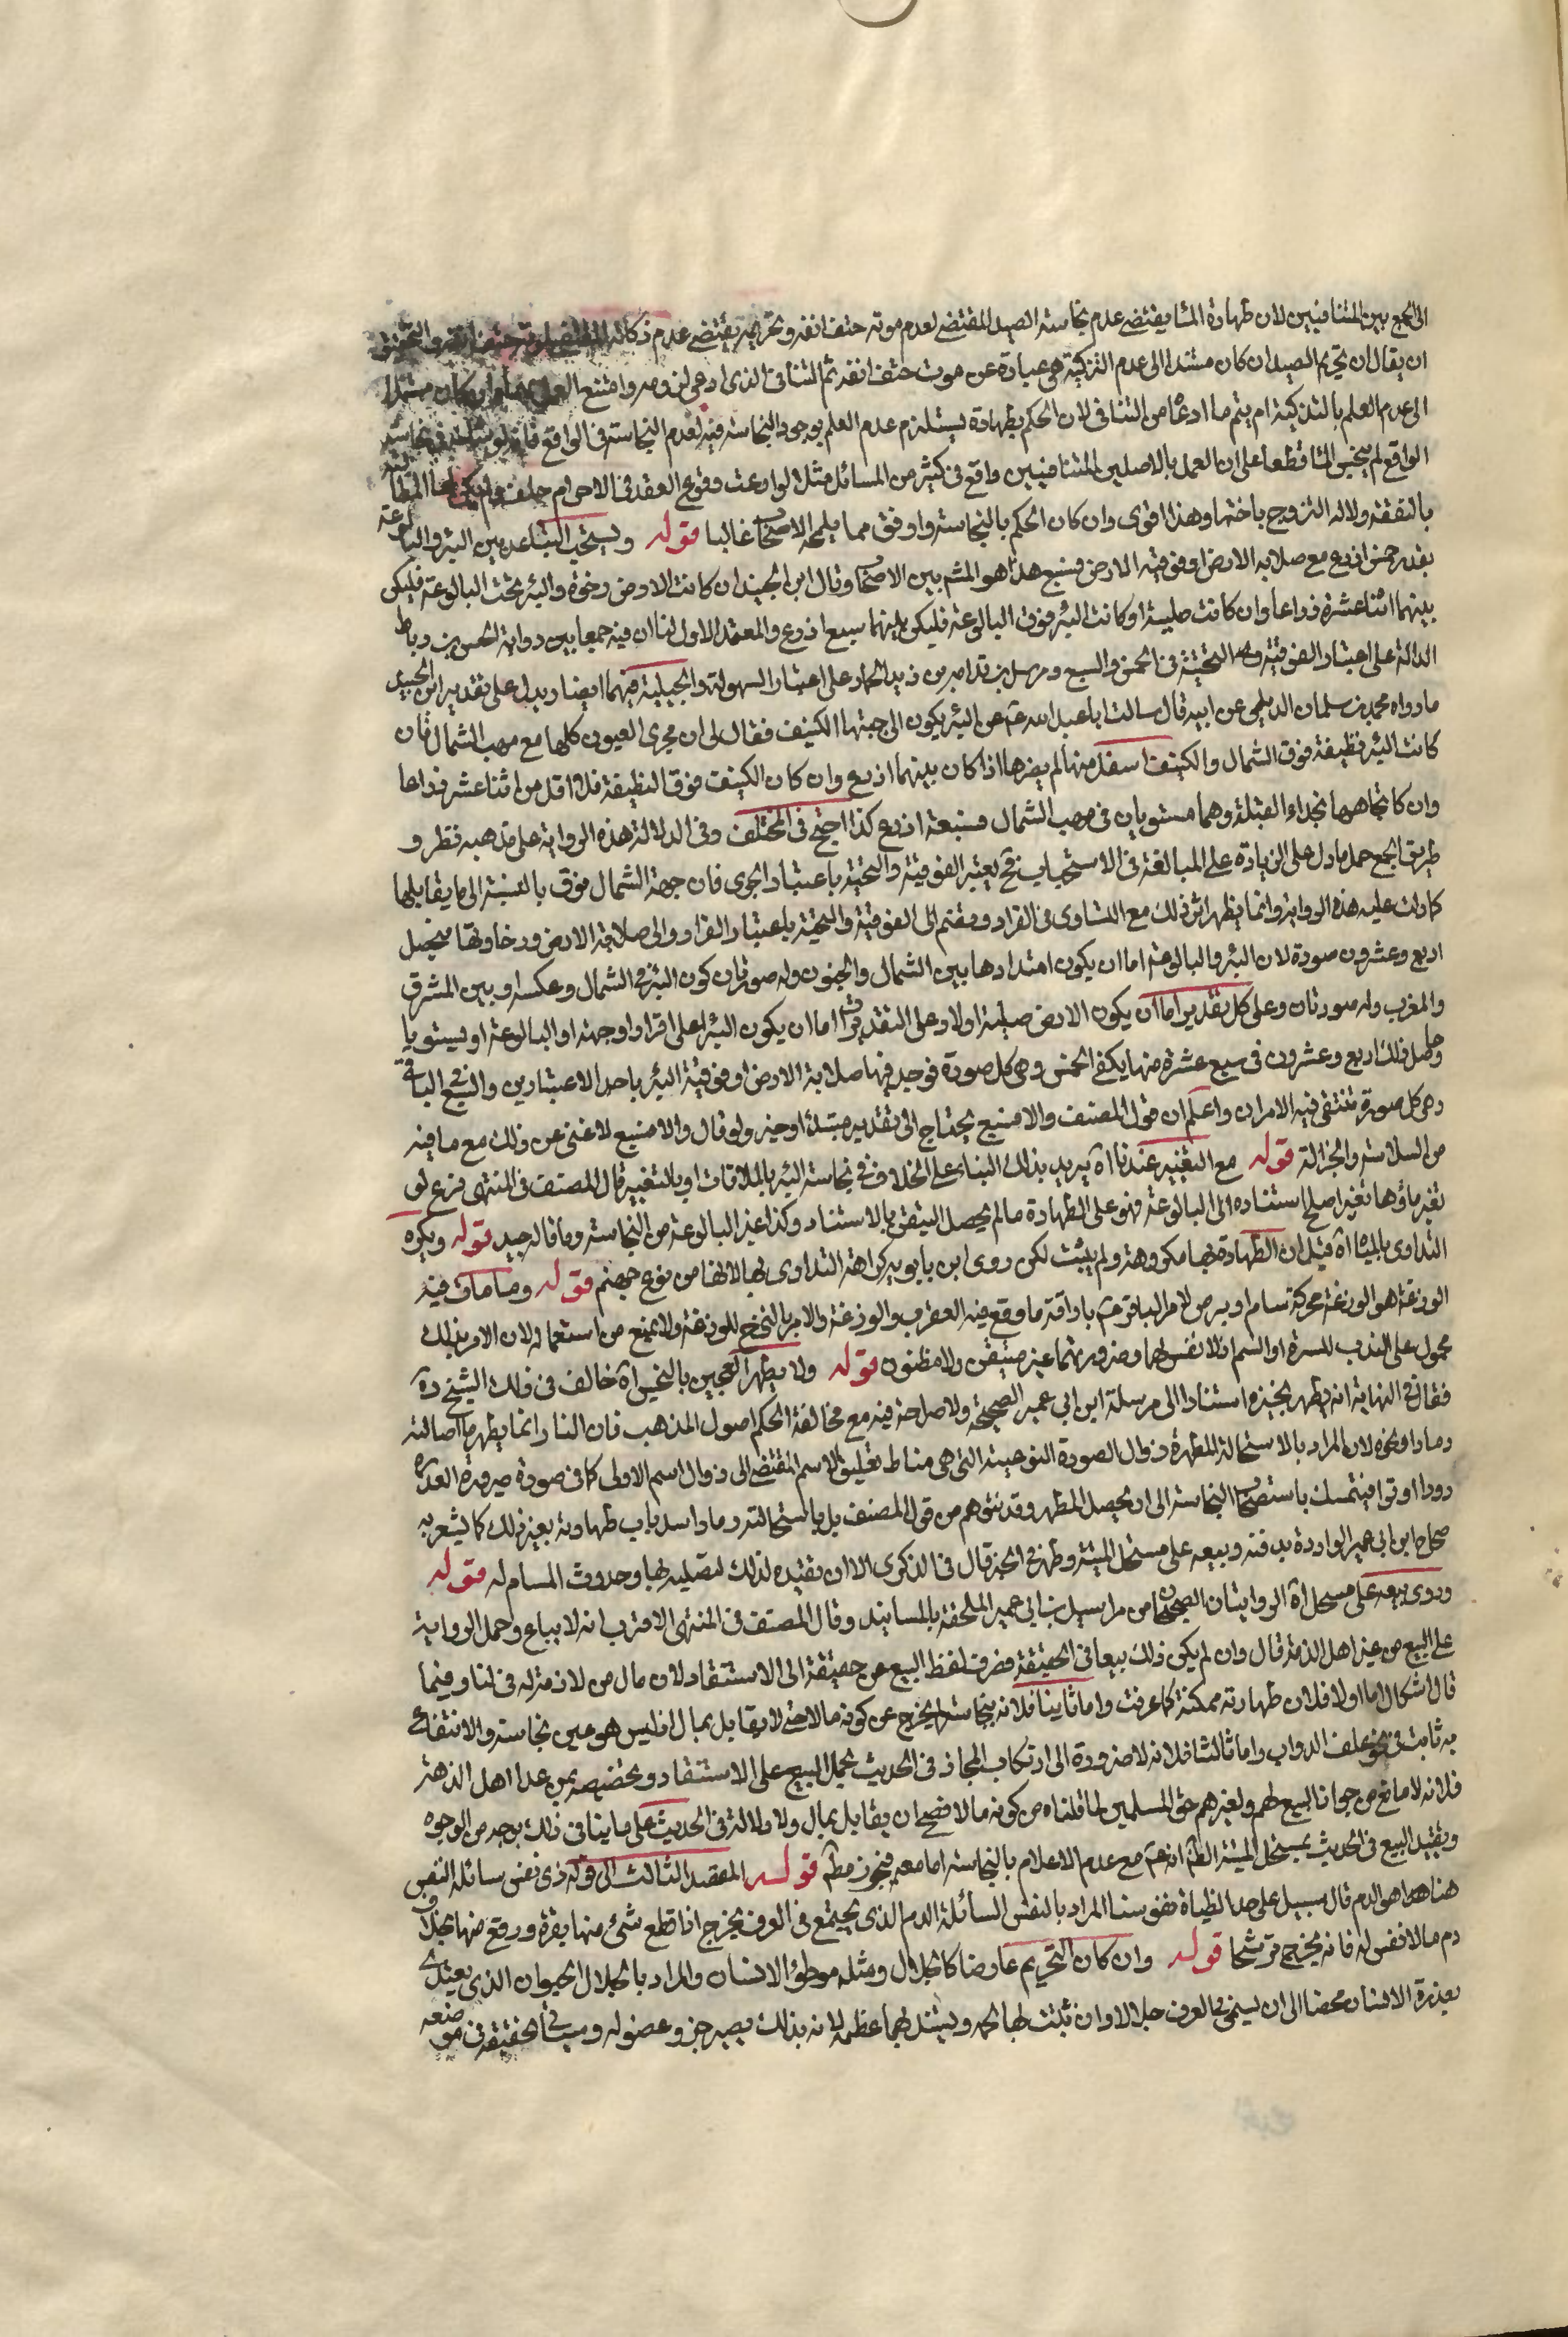 الى الجمع بين المتنافيين لان طهارة الماء يقتضى عدم نجاسة الصيد المقتضى لعدم موته حتف انفه وتحريمه يقتضى عدم ذكاته المقتضى لموته حتف انفه والتحقيق
ان يقال ان تحريم الصيد ان كان مستندا الى عدم التزكية هى عبادة عن موت حتف انفه ثم التنافى الذى ادعى لزومه وامتنع العمل بهما وان كان مستندا
الى عدم العلم بالتذكية لم يتم ما ادعاه من التنافى لان الحكم بطهارة يستلزم عدم العلم بوجود النجاسة فيه لعدم النجاسة فى الواقع فانه لو شك فى نجاسة
الواقع لم ينجس الماء قطعا على ان العمل بالاصلين المتنافيين واقع فى كثير من المسائل مثل لو ادعت وقوع العقد فى الاحرام حلف ولم يكن لها المطالبة
بالنفقة ولا له التزوج باختها وهذا اقوى وان كان الحكم بالنجاسة اوفق مما يلمحه الاصحاب غالبا قوله ويستحب التباعد بين البئر والبالوعة
بقدر خمس اذرع مع صلابه الارض او فوقيته الارض فسبع هذا هو المشهر بين الاصحاب وقال ابن الجنيد ان كانت الارض رخوة والبئر تحت البالوعة فليكن
بينهما اثنا عشرة ذراعا وان كانت صلبة او كانت البئر فوق البالوعة فليكن بينهما سبع اذرع والمعتمد الاول لنا ان فيه جمعا بين رواية الحسن بن رباط
الدالة على اعتبار الفوقية والتحتية فى الخمس والسبع ومرسل بن قدامه بن زيد الحماد على اعتبار السهولة والجبلية فيهما ايضا ويدل على تقدير ابن الجنيد
ما رواه محمد بن سلمان الديلمى عن ابيه قال سالت ابا عبد الله عم عن البئر يكون الى جنبها الكنيف فقال لى ان مجرى العيون كلها مع مهب الشمال فان
كانت البئر نظيفة فوق الشمال والكنيف اسفل منها لم يضرها اذا كان بينهما اذرع وان كان الكنيف فوق النظيفة فلا اقل من اثنا عشر ذراعا
وان كان تجاهها بحذاء القبلة وهما مستويان فى مهب الشمال فسبعة اذرع كذا احتج فى المختلف وفى الدلالة هذه الرواية على مذهبه نظر و
طريق الجمع حمل ما دل على الزيادة على المبالغة فى الاستحباب فح يعتبر الفوقية والتحتية باعتبار الجوى فان جهة الشمال فوق بالنسبة الى ما يقابلها
كما دلت عليه هذه الرواية وانما يظهر اثر ذلك مع التساوى فى القرار ويضم الى الفوقية والتحتية باعتبار القرار والى صلابة الارض ورخاوتها فيحصل
اربع وعشرون صورة لان البئر والبالوعة اما ان يكون امتدادها بين الشمال والجنوب وله صورتان كون البئر فى الشمال وعكسه او بين المشرق
والمغرب وله صورتان وعلى كل تقدير اما ان يكون الارض صلبة اولا وعلى التقديرات اما ان يكون البئر اعلى قرارا وجهة او البالوعة او يستويا
وحاصل ذلك اربع وعشرون فى سبع عشرة منها يكفى الخمس وهى كل صورة فوجد فيها صلابة الارض او فوقية البئر باحد الاعتبارين والسبع الباقية
وهى كل صورة تنتفى فيه الامران واعلم ان قول المصنف والا فسبع يحتاج الى تقدير مبتداء او خبر ولو قال والا فسبع لاغنى عن ذلك مع ما فيه
من السلاسة والجزالة قوله مع التغيير عندنا اه يريد بذلك البناء على الخلاف فى نجاسة البئر بالملاقات او بالتغيير قال المصنف فى المنتهى فرع لو
تغير ماؤها تغيرا صلح استناده الى البالوعة فهو على الطهارة ما لم يحصل اليقين بالاستناد وكذا غير البالوعة من النجاسة وما قاله جيد قوله ويكره
التداوى بالمياه اه قيل ان الطهارة بها مكروهة ولم يثبت لكن روى ابن بابويه كراهة التداوى بها لانها من فوح جهنم قوله وما مات فيه
الوزغة هو الوزغة محركة سام ابرص لامر الباقر عم باراقة ما وقع فيه العقرب والوزغة والامر بالنزح للوزغة ولا يمنع من استعماله لان الامر بذلك
محمول على الندب للسترة او السم اذ لا نفس لهما وضررهما غير متيقن ولا مظنون قوله ولا يطهر العجين بالنجس اه خالف فى ذلك الشيخ ره
فقال فى النهاية انه يطهر بخبزه استنادا الى مرسلة ابن ابى عمير الصحيحة ولا صراحة فيه مع مخالفة الحكم اصول المذهب فان النار انما يطهر ما احالته
رمادا ونحوه لان المراد بالاستحالة المطهرة زوال الصورة النوعية التى هى مناط تعليق الاسم المقتضى الى زوال اسم الاولى كما فى صورة صيرورة العذرة
دودا او ترابا فيتمسك باستصحاب النجاسة الى ان يحصل المطهر وقد يتوهم من قول المصنف بل باستحالته رمادا سد باب طهارته بغير ذلك كما يشعر به
صحاح ابن ابى عمير الواردة بدفنه وبيعه على مستحل الميتة وطهر فى الخبز قال فى الذكرى الا ان نقيده لذلك لتصليبه لها وحدوث المسام له قوله
وروى بيعه على مستحل اه الروايتان الصحيحتان من مراسيل بن ابى عمير الملحقة بالمسانيد وقال المصنف فى المنتهى الاقرب انه لا يباع وحمل الرواية
على البيع من غير اهل الذمة قال وان لم يكن ذلك بيعا فى الحقيقة فصرف لفظ البيع عن حقيقة الى الاستنقاذ لان مال من لا ذمة له فى لنا وفيما
قال اشكال اما اولا فلان طهارته ممكنة كما عرفت واما ثانيا فلانه بنجاسته لم يخرج عن كونه مالا حتى لا يقابل بمال اذ ليس هو عين نجاسة والانتفاع
به ثابت فى نحو علف الدواب واما ثالثا فلانه لا ضرورة الى ارتكاب المجاز فى الحديث بحمل البيع على الاستنقاذ وتخصيصه بمن عدا اهل الذمة
فلانه لا مانع من جواز البيع لهم ولغيرهم حتى المسلمين لما قلناه من كونه مالا فصح ان يقابل بمال ولا دلالة فى الحديث على ما ينافى ذلك بوجه من الوجوه
وتقييد البيع فى الحديث بمستحل الميتة الظاهر انه عم مع عدم الاعلام بالنجاسة اما معه فيجوز مط قوله المقصد الثالث الى قوله ذى نفس سائلة النفس
هنا هو الدم قال سبيل على حد الظباة نفوسنا المراد بالنفس السائلة الدم الذى يجتمع فى العرق يخرج اذا قطع شئ منها بقوة ودفع منها بخلاف
دم ما لا نفس له فانه يخرج ترشحا قوله وان كان التحريم عارضا كالجلال ومثله موطؤ الانسان والمراد بالجلال الحيوان الذى يغتذى
بعذرة الانسان محضا الى ان يسمى فى العرف جلالا وان نبت بها لحمه ويشتد بها عظمه لانه بذلك يصير جزو عضوله وسياتى تحقيقه فى موضعه